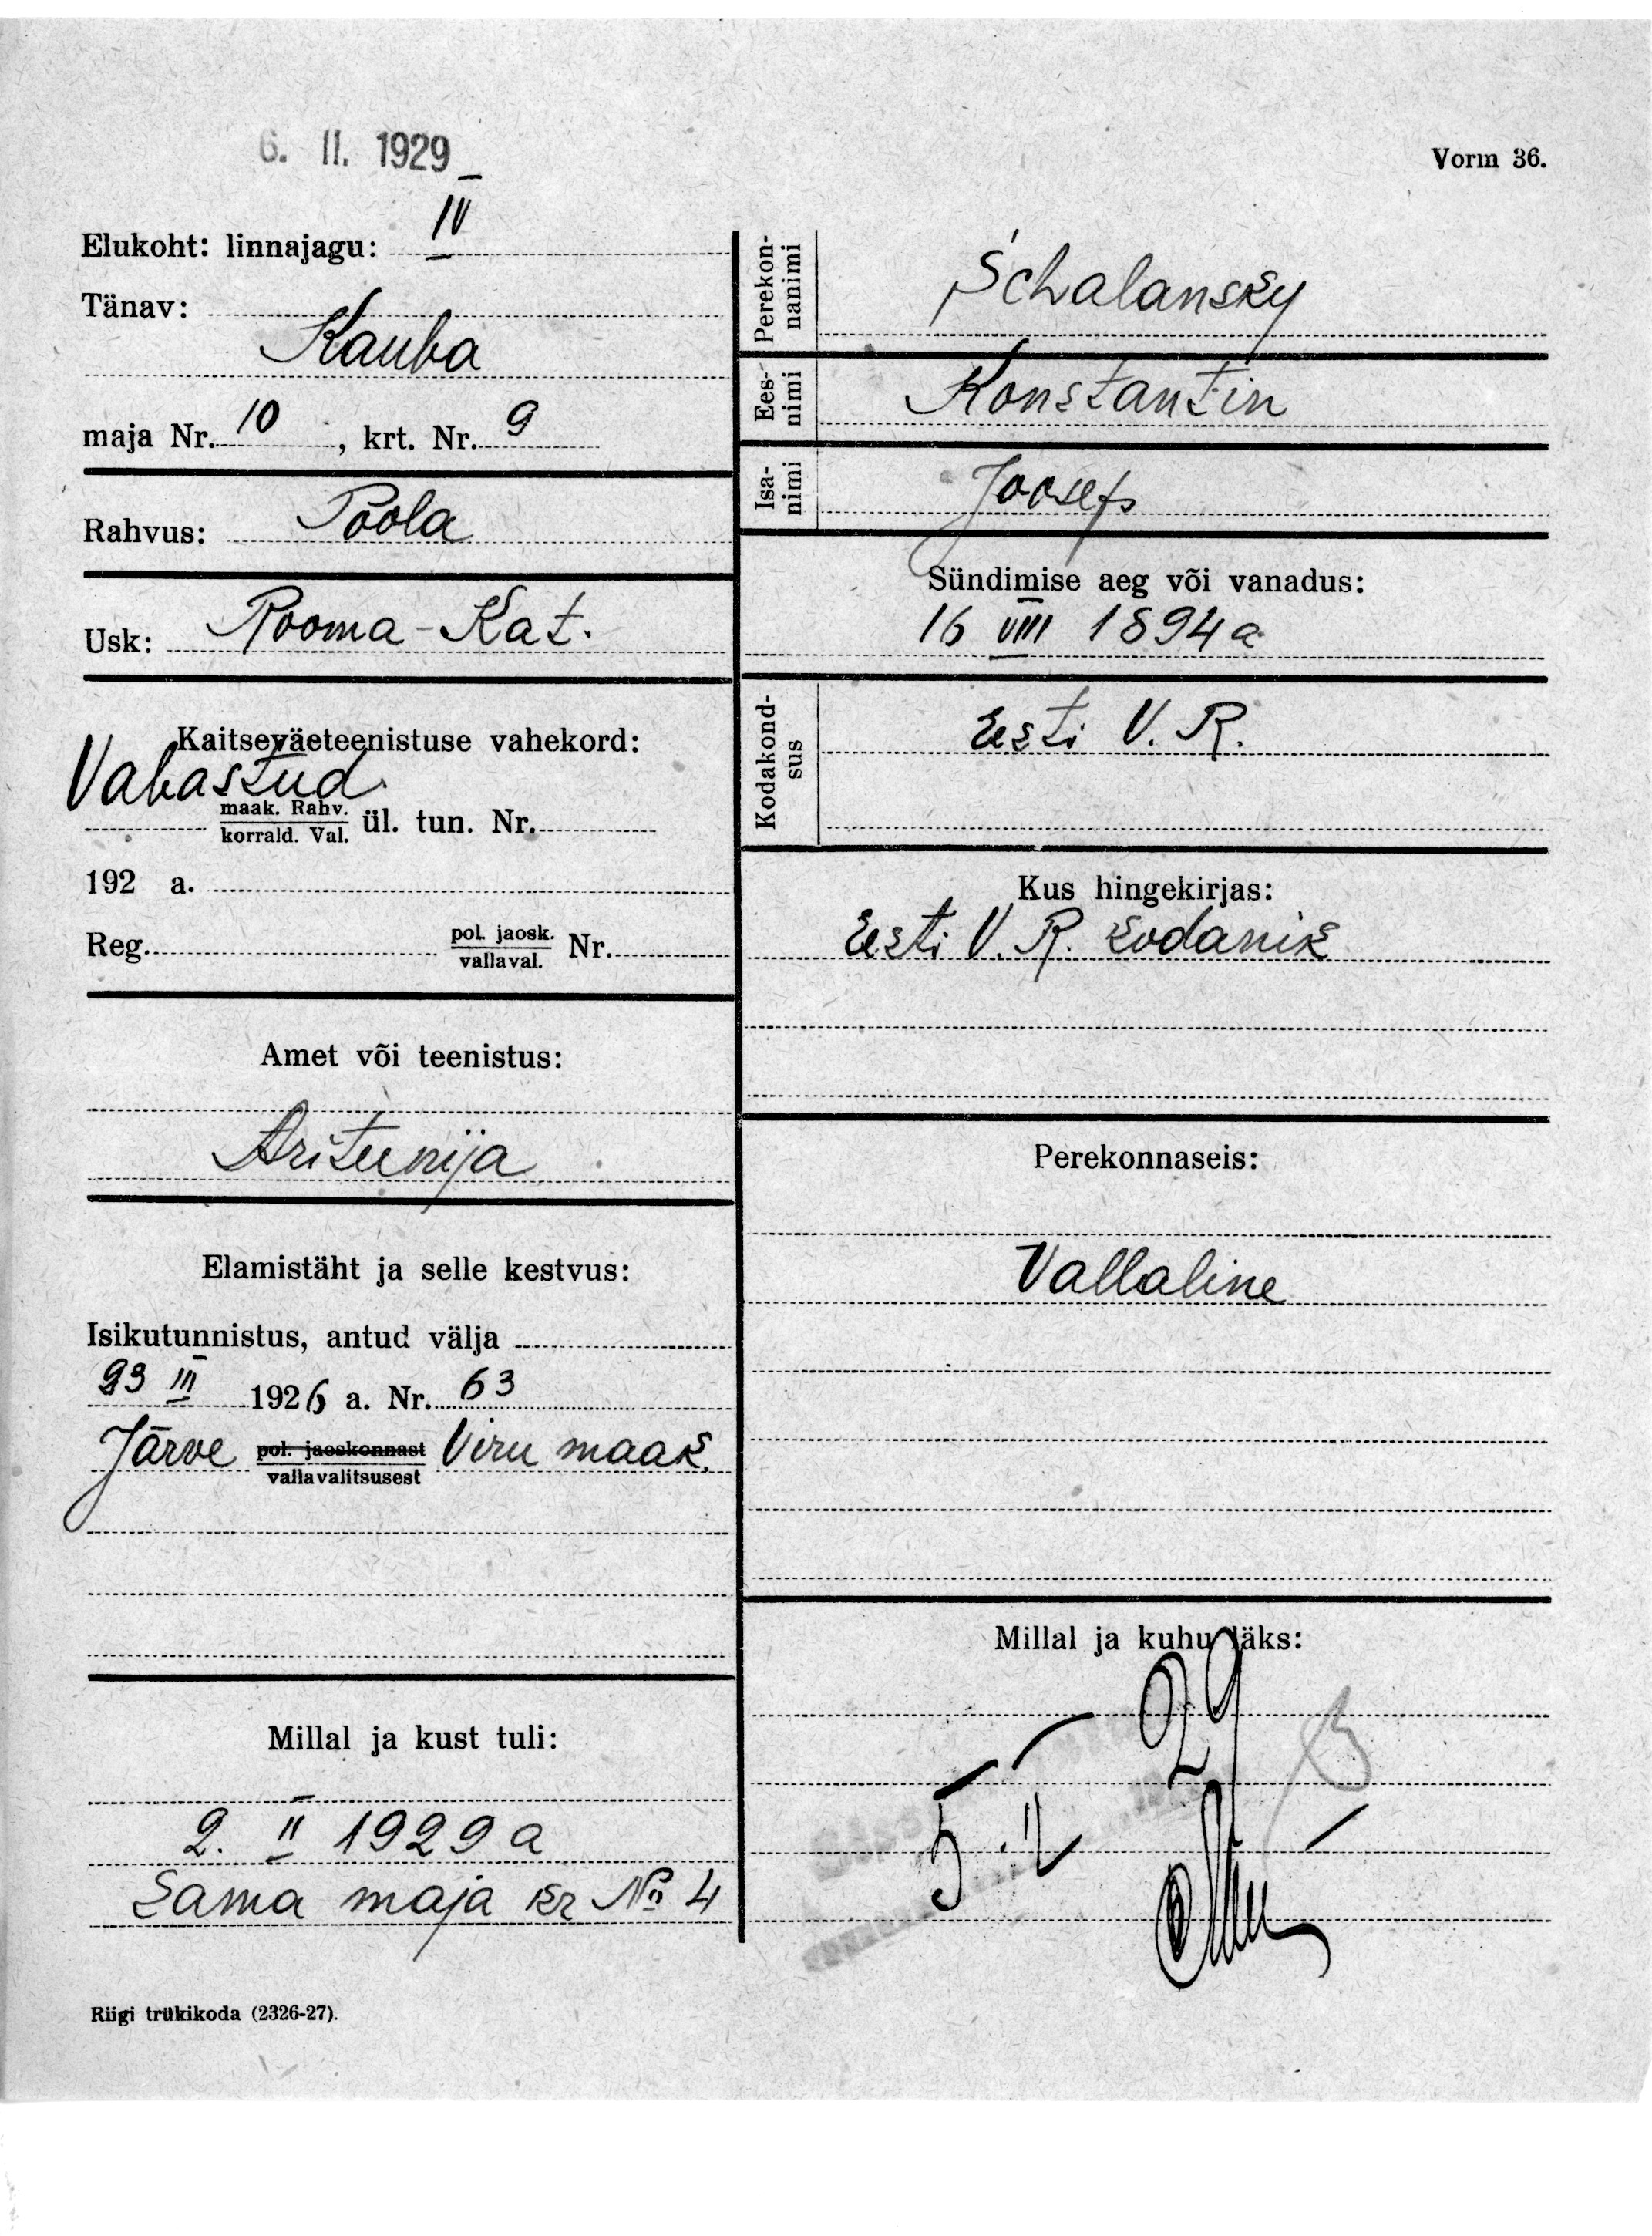 6. II. 1929
Vorm 36.
Elukoht: linnajagu: IV
Tänav:
Kauba
maja Nr. 10, krt. Nr. 9
Rahvus: Poola
Usk: Rooma-Kat.
Kaitseväeteenistuse vahekord:
Vabastud
maak. Rahv.
korrald. Val. ül. tun. Nr.
192 a.
Reg. pol. jaosk.
vallaval. Nr.
Amet või teenistus:
Äriteenija
Elamistäht ja selle kestvus:
Isikutunnistus, antud välja
23 III 1926 a. Nr. 63
Järve pol. jaoskonnast Viru maak.
vallavalitsusest
Millal ja kust tuli:
2. II 1929 a
Sama maja kr № 4
Riigi trükikoda (2326-27).
Perekon-
nanimi
Schalansky
Ees-
nimi
Konstantin
Isa-
nimi
Joosefs
Sündimise aeg või vanadus:
16 VIII 1894 a
Kodakond-
sus
Eesti V. R.
Kus hingekirjas:
Eesti V. R. kodanik
Perekonnaseis:
Vallaline
Millal ja kuhu läks:
29